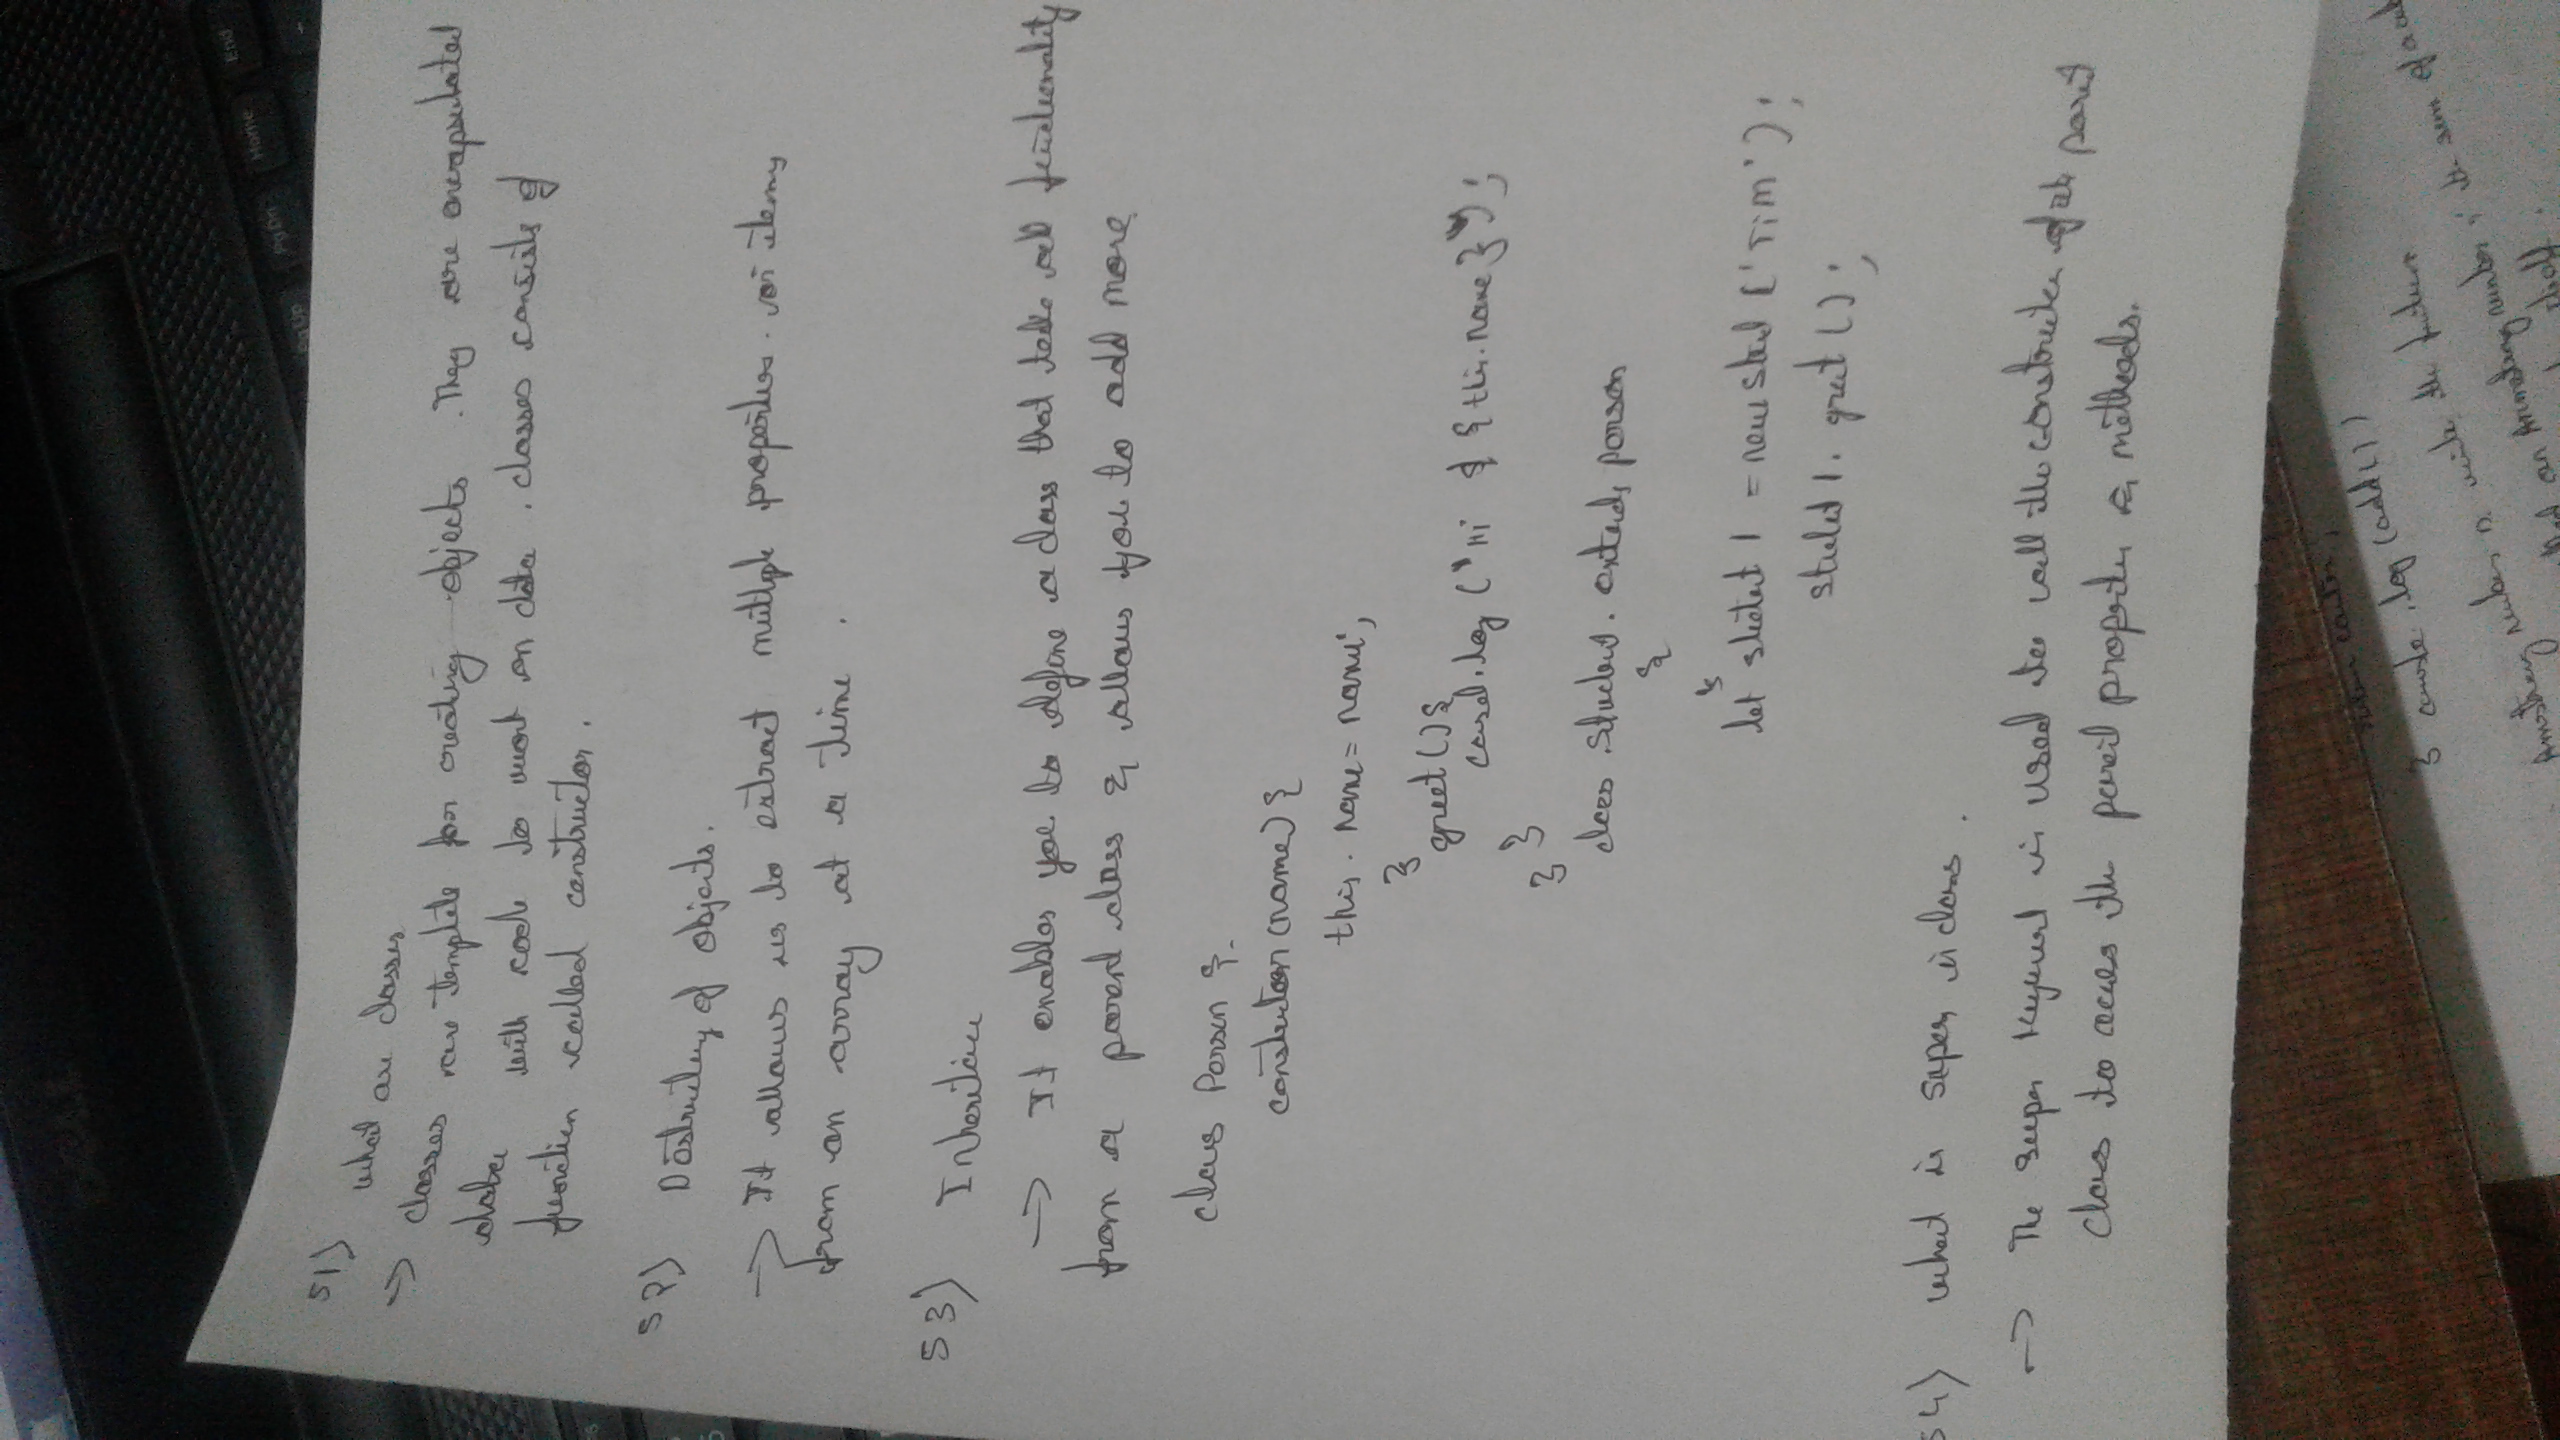 DELL
Pg Up PgDn Home End
51)
what are classes
→ classes are template for creating objects . They are encapsulated
data with code to work on data . classes consists of
function called constructor .
52) Destructuring of objects .
→ It allows us to extract multiple properties or items
from an array at a time .
53) Inheritance
→ It enables you to define a class that take all functionality
from a parent class & allows you to add more
class Person {
constructor (name) {
this . name = name ;
}
greet () {
console.log (`Hi $ {this.name}`) ;
}
}
class Student . extends person
{
}
let student 1 = new Stud ('Tim') ;
student 1 . greet () ;
54) what is super in class .
→ The super keyword is used to call the constructor of its parent
class to access the parent properties & methods.
return counter ;
} console .log (add())
Armstrong number write the function
an Armstrong number the sum of a
itself .